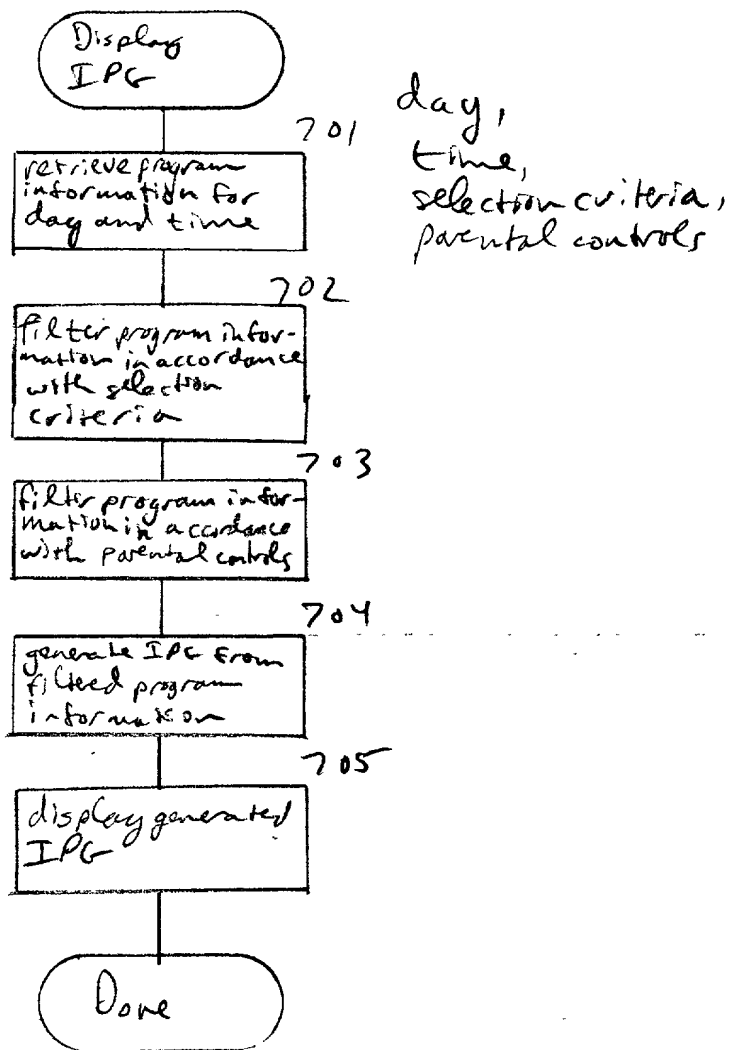 Display
IPG
day,
time,
selection criteria,
parental controls
701
retrieve program
information for
day and time
702
filter program infor-
mation in accordance
with selection
criteria
703
filter program infor-
mation in accordance
with parental controls
704
generate IPG from
filtered program
information
705
display generated
IPG
Done